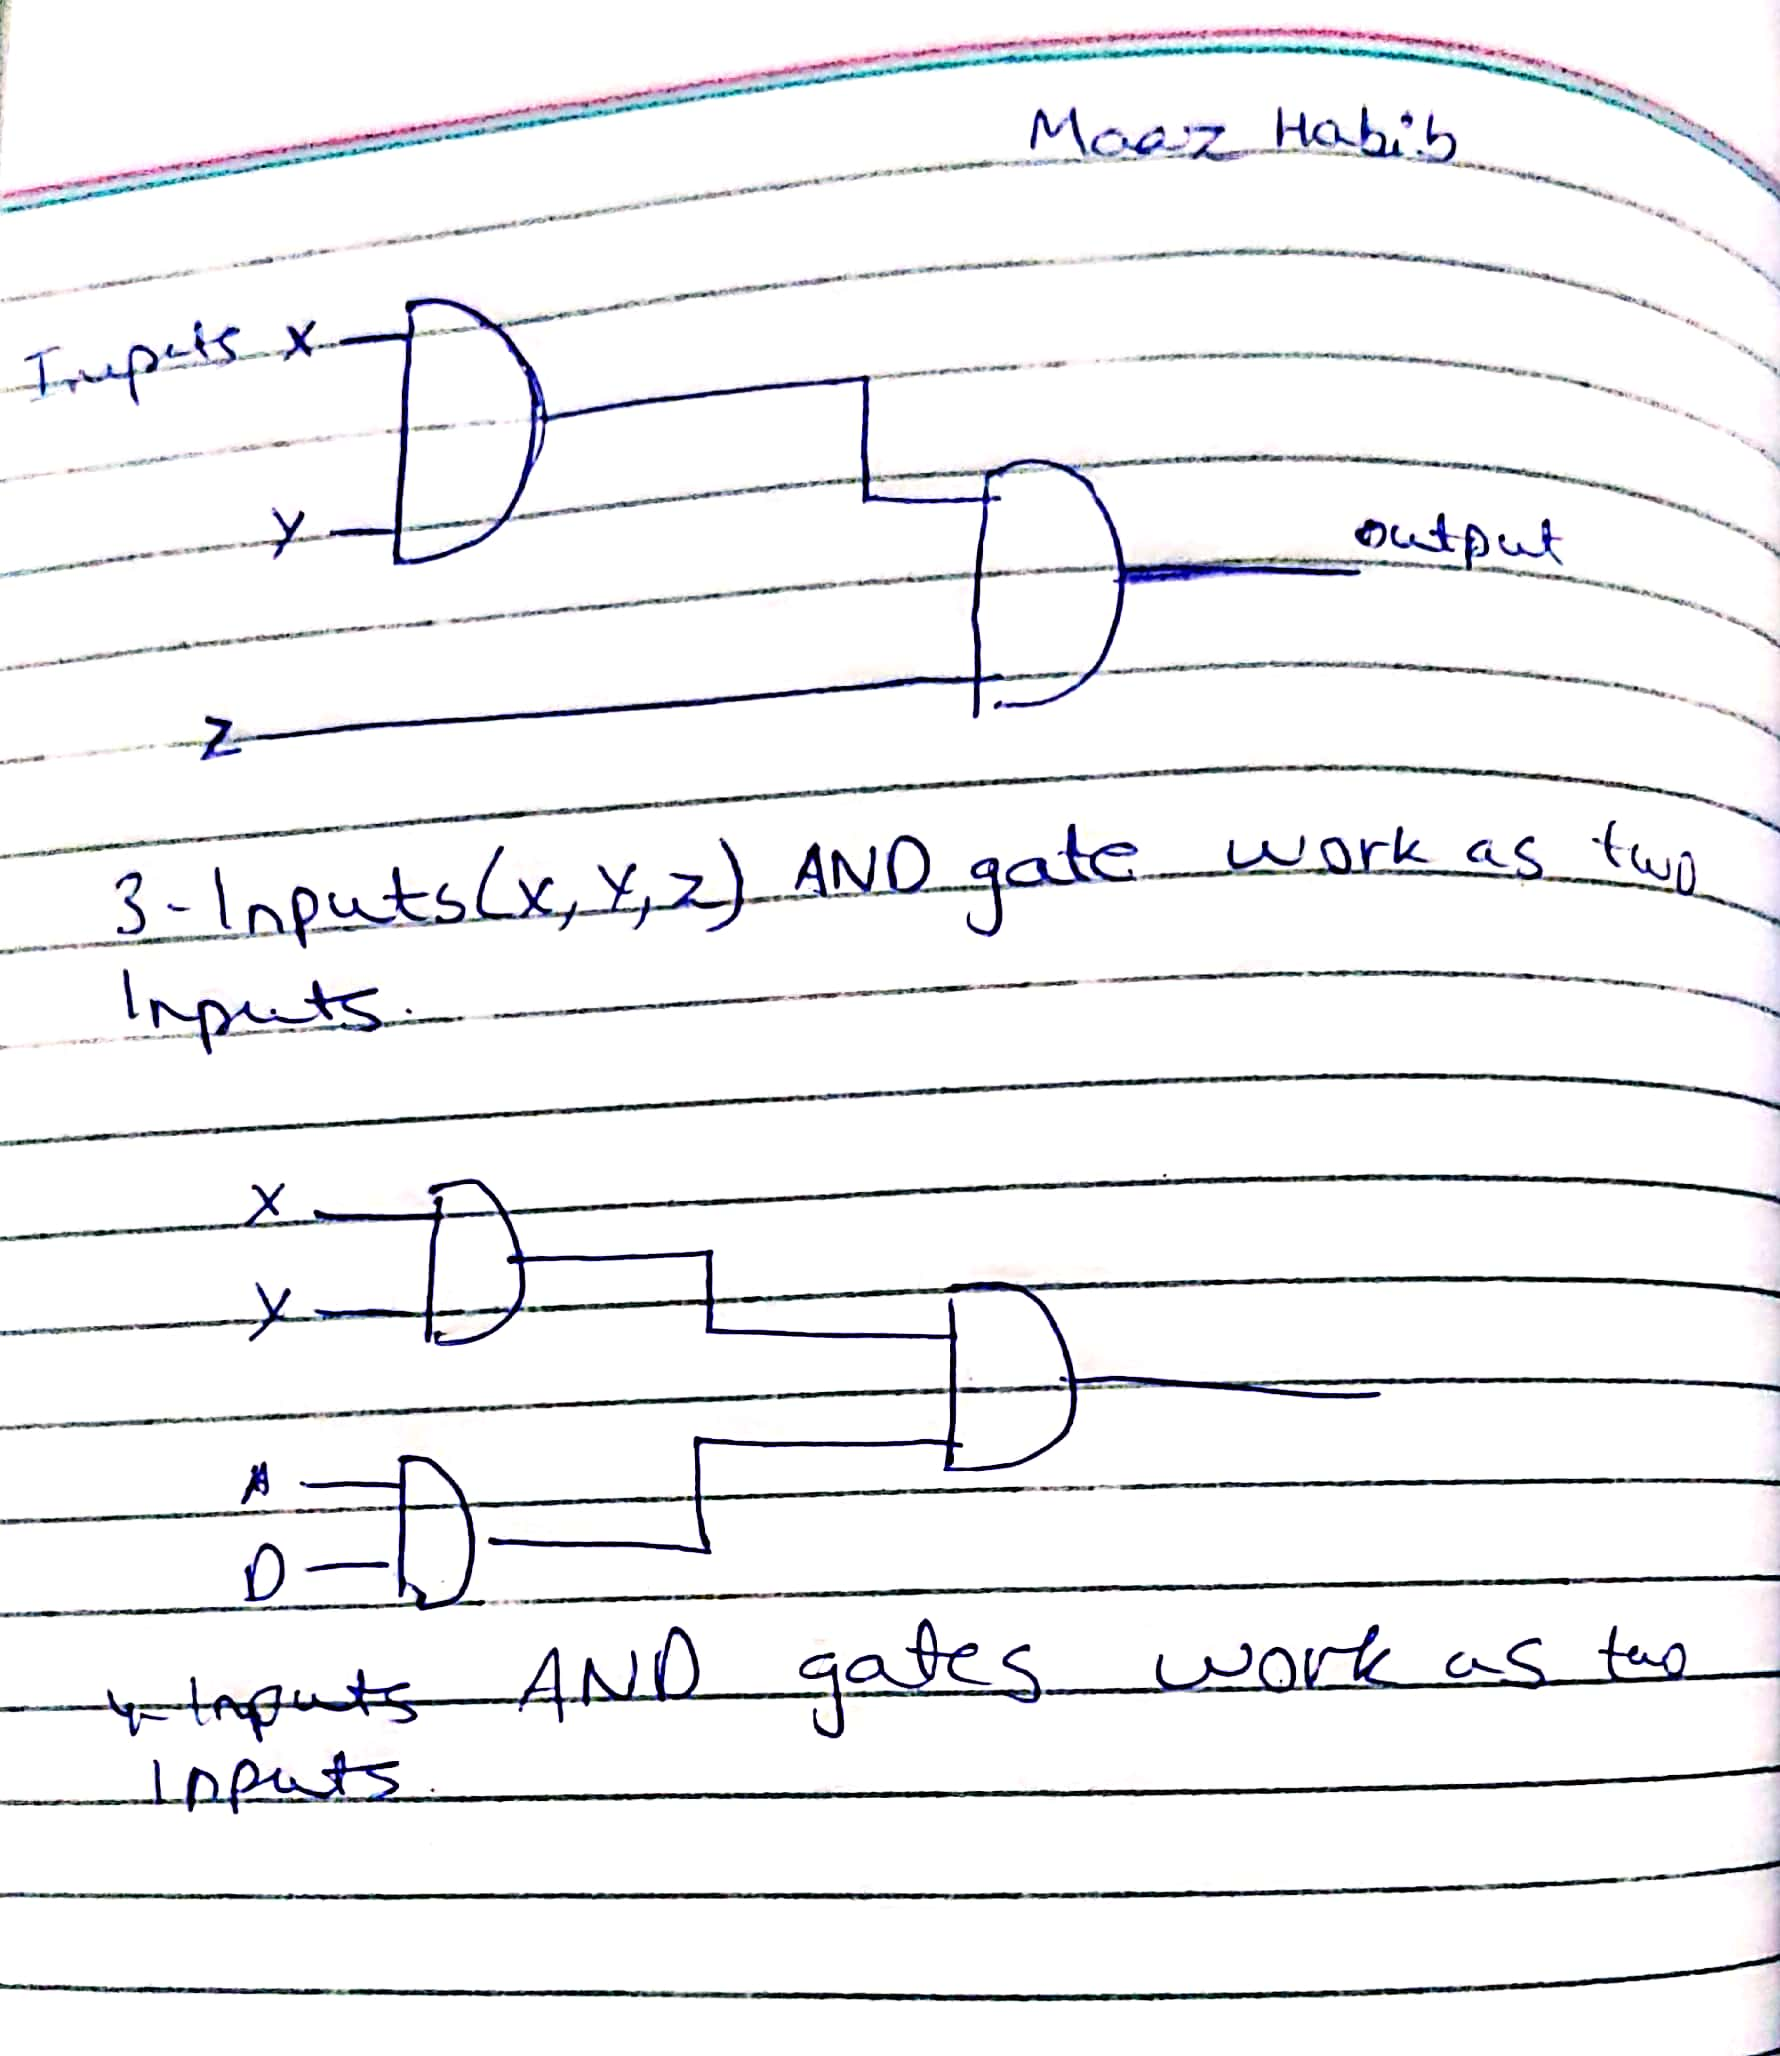 Maaz Habib
Inputs X
Y
output
Z
3-Inputs(x, y, z) AND gate work as two
Inputs.
X
Y
A
D
4-Inputs AND gates work as two
Inputs.